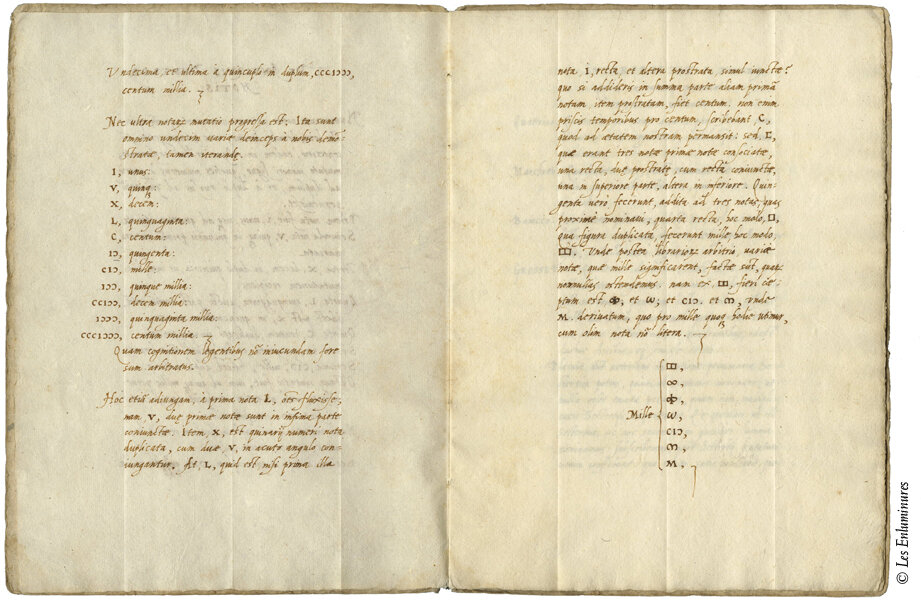 Vndecima, et ultima à quincuplo in duplum, CCCIƆƆƆ,
centum millia.
Nec ultra notarum mutatio progressa est. Ita sunt
omnino undecim variae deinceps à nobis demõ
stratae, tamen iterandae.
I, unus:
V, quinq;:
X, decem:
L, quinquaginta:
C, centum:
IƆ, quingenta:
CIƆ, mille:
IƆƆ, quinque millia:
CCIƆƆ, decem millia:
IƆƆƆ, quinquaginta millia:
CCCIƆƆƆ, centum millia.
Quam cognitionem legentibus nõ iniucundam fore
sum arbitratus.
Hoc etiã adiungam, à prima nota I, oẽs fluxisse,
nam V, duę primae notae sunt in infima parte
coniunctae. Item, X, est quinarij numeri nota
duplicata, cum duae, V, in acuto angulo con-
iungantur. At, L, quid est nisi prima illa
nota I, recta, et altera prostrata, simul iunctae?
quo si addideris in summa parte aliam primã
notam, item prostratam, fiet centum. non enim
priscis temporibus pro centum, scribebant C,
quod ad aetatem nostram permansit: sed, ⊏,
quae erant tres notae primae notae consociatae,
una recta, duę prostratę, cum recta coniunctae,
una in superiore parte, altera in inferiore. Quin-
genta vero fecerunt, addita ad tres notas, quas
proxime nominavi, quarta recta, hoc modo, □,
qua figura duplicata, fecerunt mille, hoc modo,
▯▯. Unde postea librariorum arbitrio, variae
notae, quae mille significarent, factae sũt, quas
nonnullas ostendemus. nam ex ▯▯, fieri cae-
ptum est Φ, et ω, et CIƆ. et ო, unde
M. derivatum, quo pro mille quoq; hodie utimur,
cum olim nota nõ litera.
Mille
▯▯,
∞,
Φ,
ω,
CIƆ,
ო,
M,
© Les Enluminures